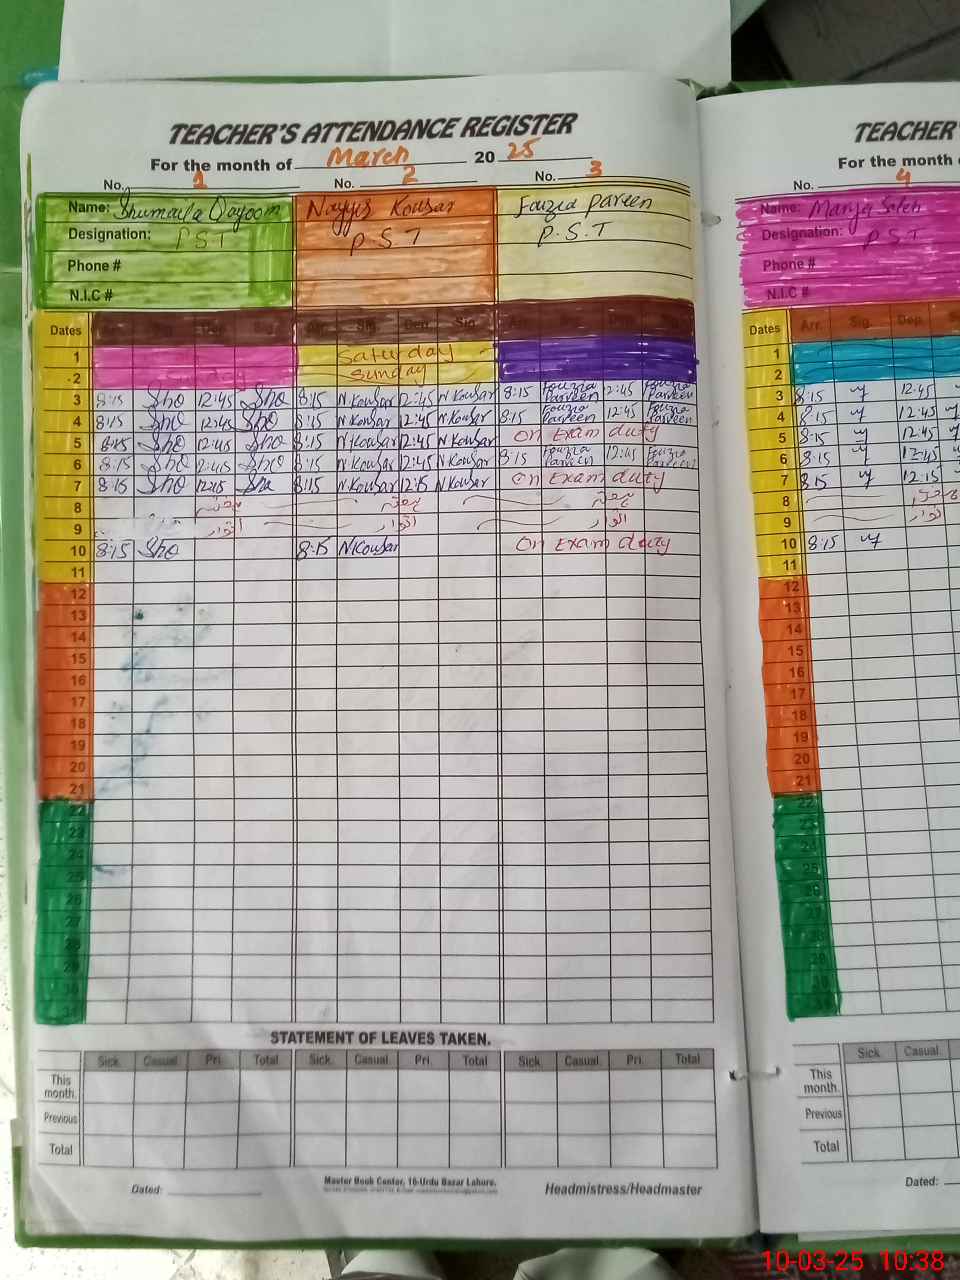 TEACHER'S ATTENDANCE REGISTER
For the month of March 2025
No. 1 No. 2 No. 3
Name: Shumaila Qayoom Kousar Fouzia Parveen
Designation: P.S.T P.S.T P.S.T
Phone #
N.I.C #
Dates Arr. Sig. Dep. Sig. Arr. Sig. Dep. Sig. Arr. Dep.
1 Saturday
2 Sunday Sunday
3 8:15 Sho 12:45 Sho 8:15 N.Kousar 12:45 N Kousar 8:15 Fouzia Parveen 12:45 Fouzia Parveen
4 8:15 Sho 12:45 Sho 8:15 N.Kousar 12:45 N Kousar 8:15 Fouzia Parveen 12:45 Fouzia Parveen
5 8:15 Sho 12:45 Sho 8:15 N Kousar 12:45 N Kousar On Exam duty
6 8:15 Sho 12:45 Sho 8:15 N.Kousar 12:45 N Kousar 8:15 Fouzia Parveen 12:45 Fouzia Parveen
7 8:15 Sho 12:15 Sho 8:15 N.Kousar 12:15 N Kousar On Exam duty
8 ہفتہ ہفتہ ہفتہ
9 اتوار اتوار اتوار
10 8:15 Sho 8:15 N Kousar On Exam duty
11
12
13
14
15
16
17
18
19
20
21
22
23
24
25
26
27
28
29
30
31
STATEMENT OF LEAVES TAKEN.
Sick. Casual Pri. Total Sick. Casual. Pri. Total Sick. Casual. Pri. Total
This month.
Previous
Total
Master Book Center, 16-Urdu Bazar Lahore.
Dated: Headmistress/Headmaster
TEACHER'
For the month
No. 4
Name:
Designation: P.S.T
Phone #
N.I.C #
Dates Arr. Sig. Dep.
1
2
3 8:15 12:45
4 8:15 12:45
5 8:15 12:45
6 8:15 12:45
7 8:15 12:15
8 ہفتہ
9 اتوار
10 8:15
11
12
13
14
15
16
17
18
19
20
21
22
23
24
25
26
27
28
29
30
31
Sick. Casual.
This month.
Previous
Total
Dated:
10-03-25 10:38